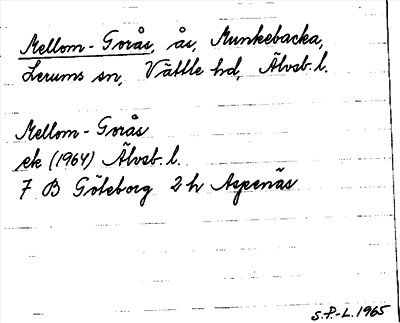 Mellom-Gorås, ås, Munkebacka,
Lerums sn, Vättle hd, Älvsb. l.
Mellom-Gorås
ek (1964) Älvsb. l.
7 B Göteborg 2 h Aspenäs
S.P.-L. 1965